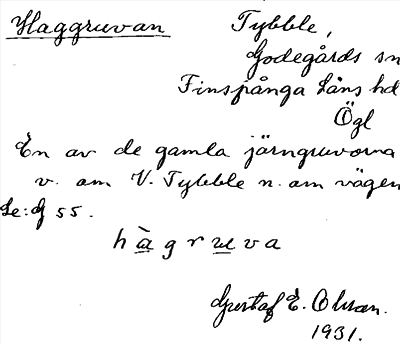 Haggruvan
Tybble,
Godegårds sn
Finspånga läns hd
Ögl
En av de gamla järngruvorna
v. om V. Tybble n. om vägen
Se: G 55.
hàgruva
Gustaf E. Olson.
1931.